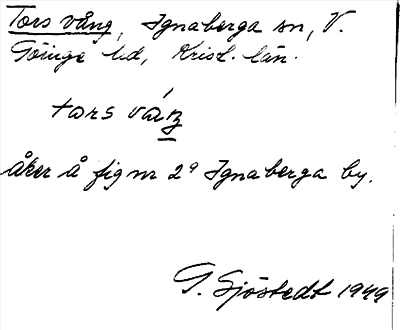 Tors vång, Ignaberga sn, V.
Göinge hd, Krist. län.
tårs våŋ
åker å fig nr 2ª Ignaberga by.
G. Sjöstedt 1949